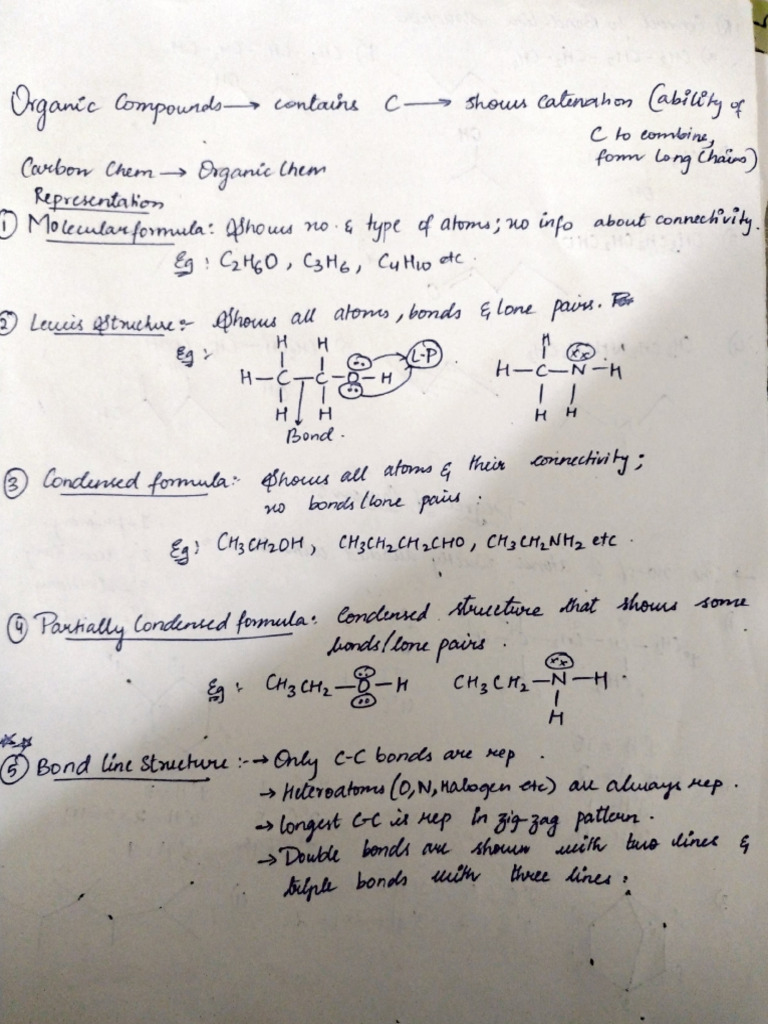 Organic Compounds → contains C → shows catenation (ability of
C to combine,
form long chains)
Carbon Chem → Organic Chem
Representation
① Molecular formula: Shows no. & type of atoms; no info about connectivity.
Eg: C2H6O, C3H6, C4H10 etc.
② Lewis Structure:- Shows all atoms, bonds & lone pairs.
Eg:
H H
H–C–C–O–H L-P
H H
Bond.
H
H–C–N–H
H H
③ Condensed formula:- Shows all atoms & their connectivity;
no bonds/lone pairs.
Eg: CH3CH2OH, CH3CH2CH2CHO, CH3CH2NH2 etc.
④ Partially Condensed formula: Condensed structure that shows some
bonds/lone pairs.
Eg: CH3CH2–O–H CH3CH2–N–H.
H
⑤ Bond line Structure:-→ Only C-C bonds are rep.
→ Heteroatoms (O,N,Halogen etc) are always rep.
→ longest C-C is rep in zig-zag pattern.
→ Double bonds are shown with two lines &
triple bonds with three lines: